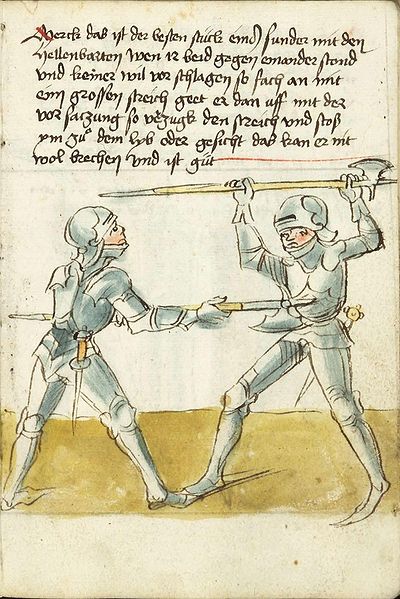 Merck das ist der besten stuck eind sunder mit den
hellenbarten wen ir beid gegen einander stond
vnd keiner wil vor schlagen so fach an mit
eim grossen streich geet er dan uff mit der
vor saczung so verzugk den streich vnd stoß
ym zu dem lyb oder gesicht das kan er nit
wol brechen vnd ist gut